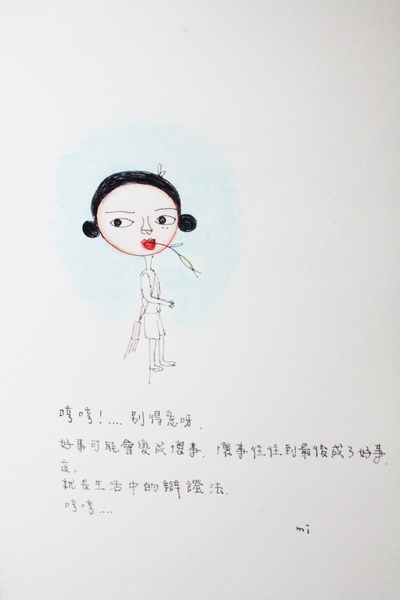 哼哼!....别得意呀.
好事可能會變成壞事.壞事往往到最後成了好事.
這,
就是生活中的辯證法.
哼哼....
mi